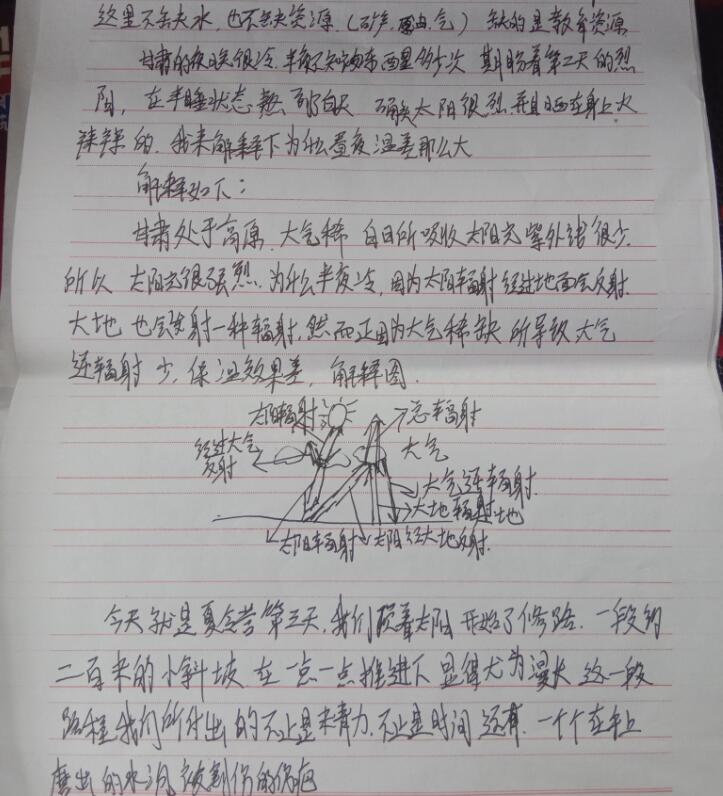 这里不缺水,也不缺资源.(矿产.石油.气) 缺的是教育资源
甘肃的夜晚很冷.半夜不知道东西星多少次 期盼着第二天的烈
阳,在半睡状态熬到白天 确实太阳很烈.并且晒在身上火
辣辣的.我来解释下为什么昼夜温差那么大
解释如下:
甘肃处于高原.大气稀 白日所吸收太阳光紫外线很少.
所以 太阳光很强烈.为什么半夜冷,因为太阳辐射经过地面会反射.
大地也会发射一种辐射.然而正因为大气稀缺所导致大气
逆辐射少,保温效果差,解释图.
太阳辐射
总辐射
经过大气
反射
大气
大气逆辐射.
大地辐射
地
太阳辐射
太阳经大地反射.
今天就是夏令营第三天,我们顶着太阳开始了修路.一段约
二百米的小斜坡 在一点一点推进下 显得尤为漫长 这一段
路程我们所付出的不止是末青力.不止是时间 还有.一个个在手上
磨出的水泡 被割伤的伤疤